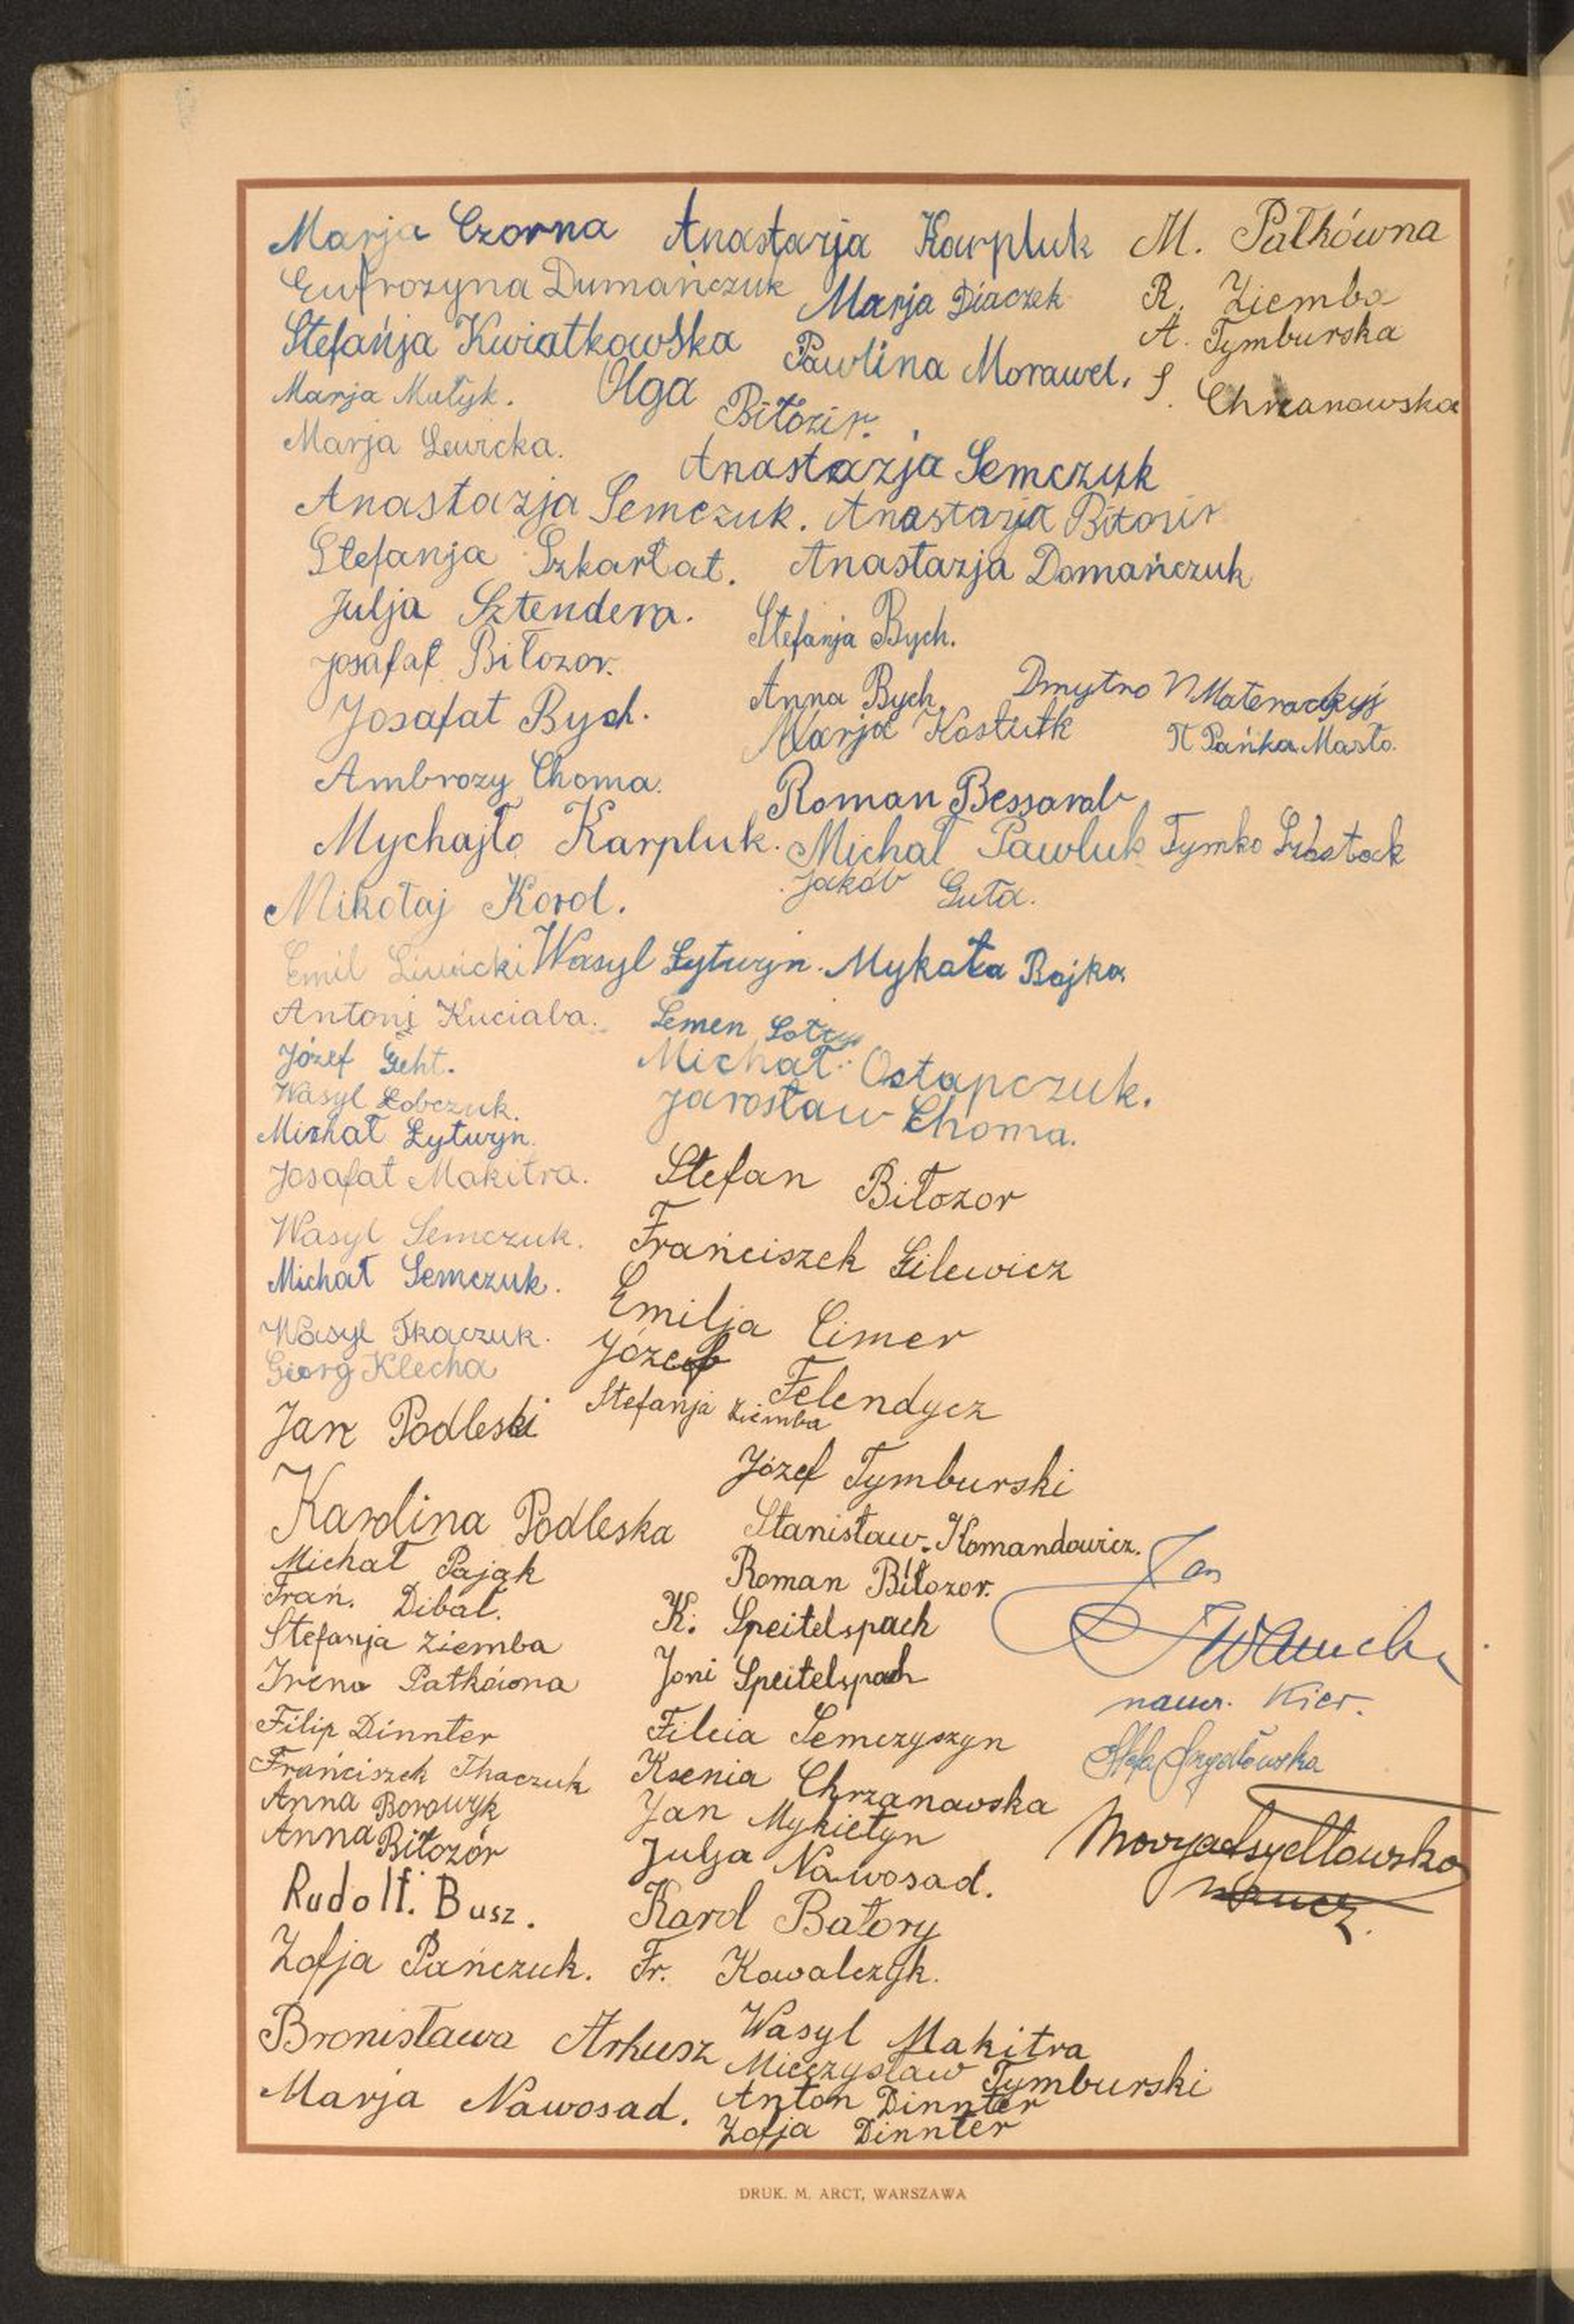 Marja Czorna Anastazja Karpluk M. Pałkówna
Eufrozyna Dumańczuk Marja Diaczek R. Ziemba
Stefańja Kwiatkowska Pawlina Morawel. A. Tymburska
Marja Matyk. Olga Biłozir. S. Chrzanowska
Marja Lewicka. Anastazja Semczuk
Anastazja Semczuk. Anastazja Biłozir
Stefanja Szkarłat. Anastazja Domańczuk
Julja Sztendera. Stefanja Bych.
Josafat Biłozor. Anna Bych. Dmytro
Josafat Bych. Marja Kostiuk Pańka Masło.
Ambrozy Choma. Roman Bessarab
Mychajło Karpluk. Michał Pawluk Tymko
Mikołaj Korol. Jakób Guta.
Emil Liwicki Wasyl Łytwyn. Mykoła Bojko
Antoni Kuciaba. Semen
Józef Geht. Michał Ostapczuk.
Wasyl Łobczuk. Jarosław Choma.
Michał Łytwyn.
Josafat Makitra. Stefan Biłozor
Wasyl Semczuk. Frańciszek Gilewicz
Michał Semczuk. Emilja Cimer
Wasyl Tkaczuk. Józef Felendycz
Georg Klecha Stefanja Ziemba
Jan Podleski Józef Tymburski
Karolina Podleska Stanisław Komandowicz.
Michał Pająk Roman Biłozor. Jan
Frań. Dibał. K. Speitelspach
Stefanja Ziemba Joni Speitelspach
Irena Pałkówna naucz. Kier.
Filip Dinnter Filcia Semczyszyn
Frańciszek Tkaczuk Ksenia Chrzanowska
Anna Borowyk Jan Mykietyn
Anna Biłozór Julja Nawosad.
Rudolf. Busz. Karol Batory naucz.
Zofja Pańczuk. Fr. Kowalczyk.
Bronisława Arkusz Wasyl Makitra
Mieczysław Tymburski
Marja Nawosad. Anton Dinnter
Zofja Dinnter
DRUK. M. ARCT, WARSZAWA